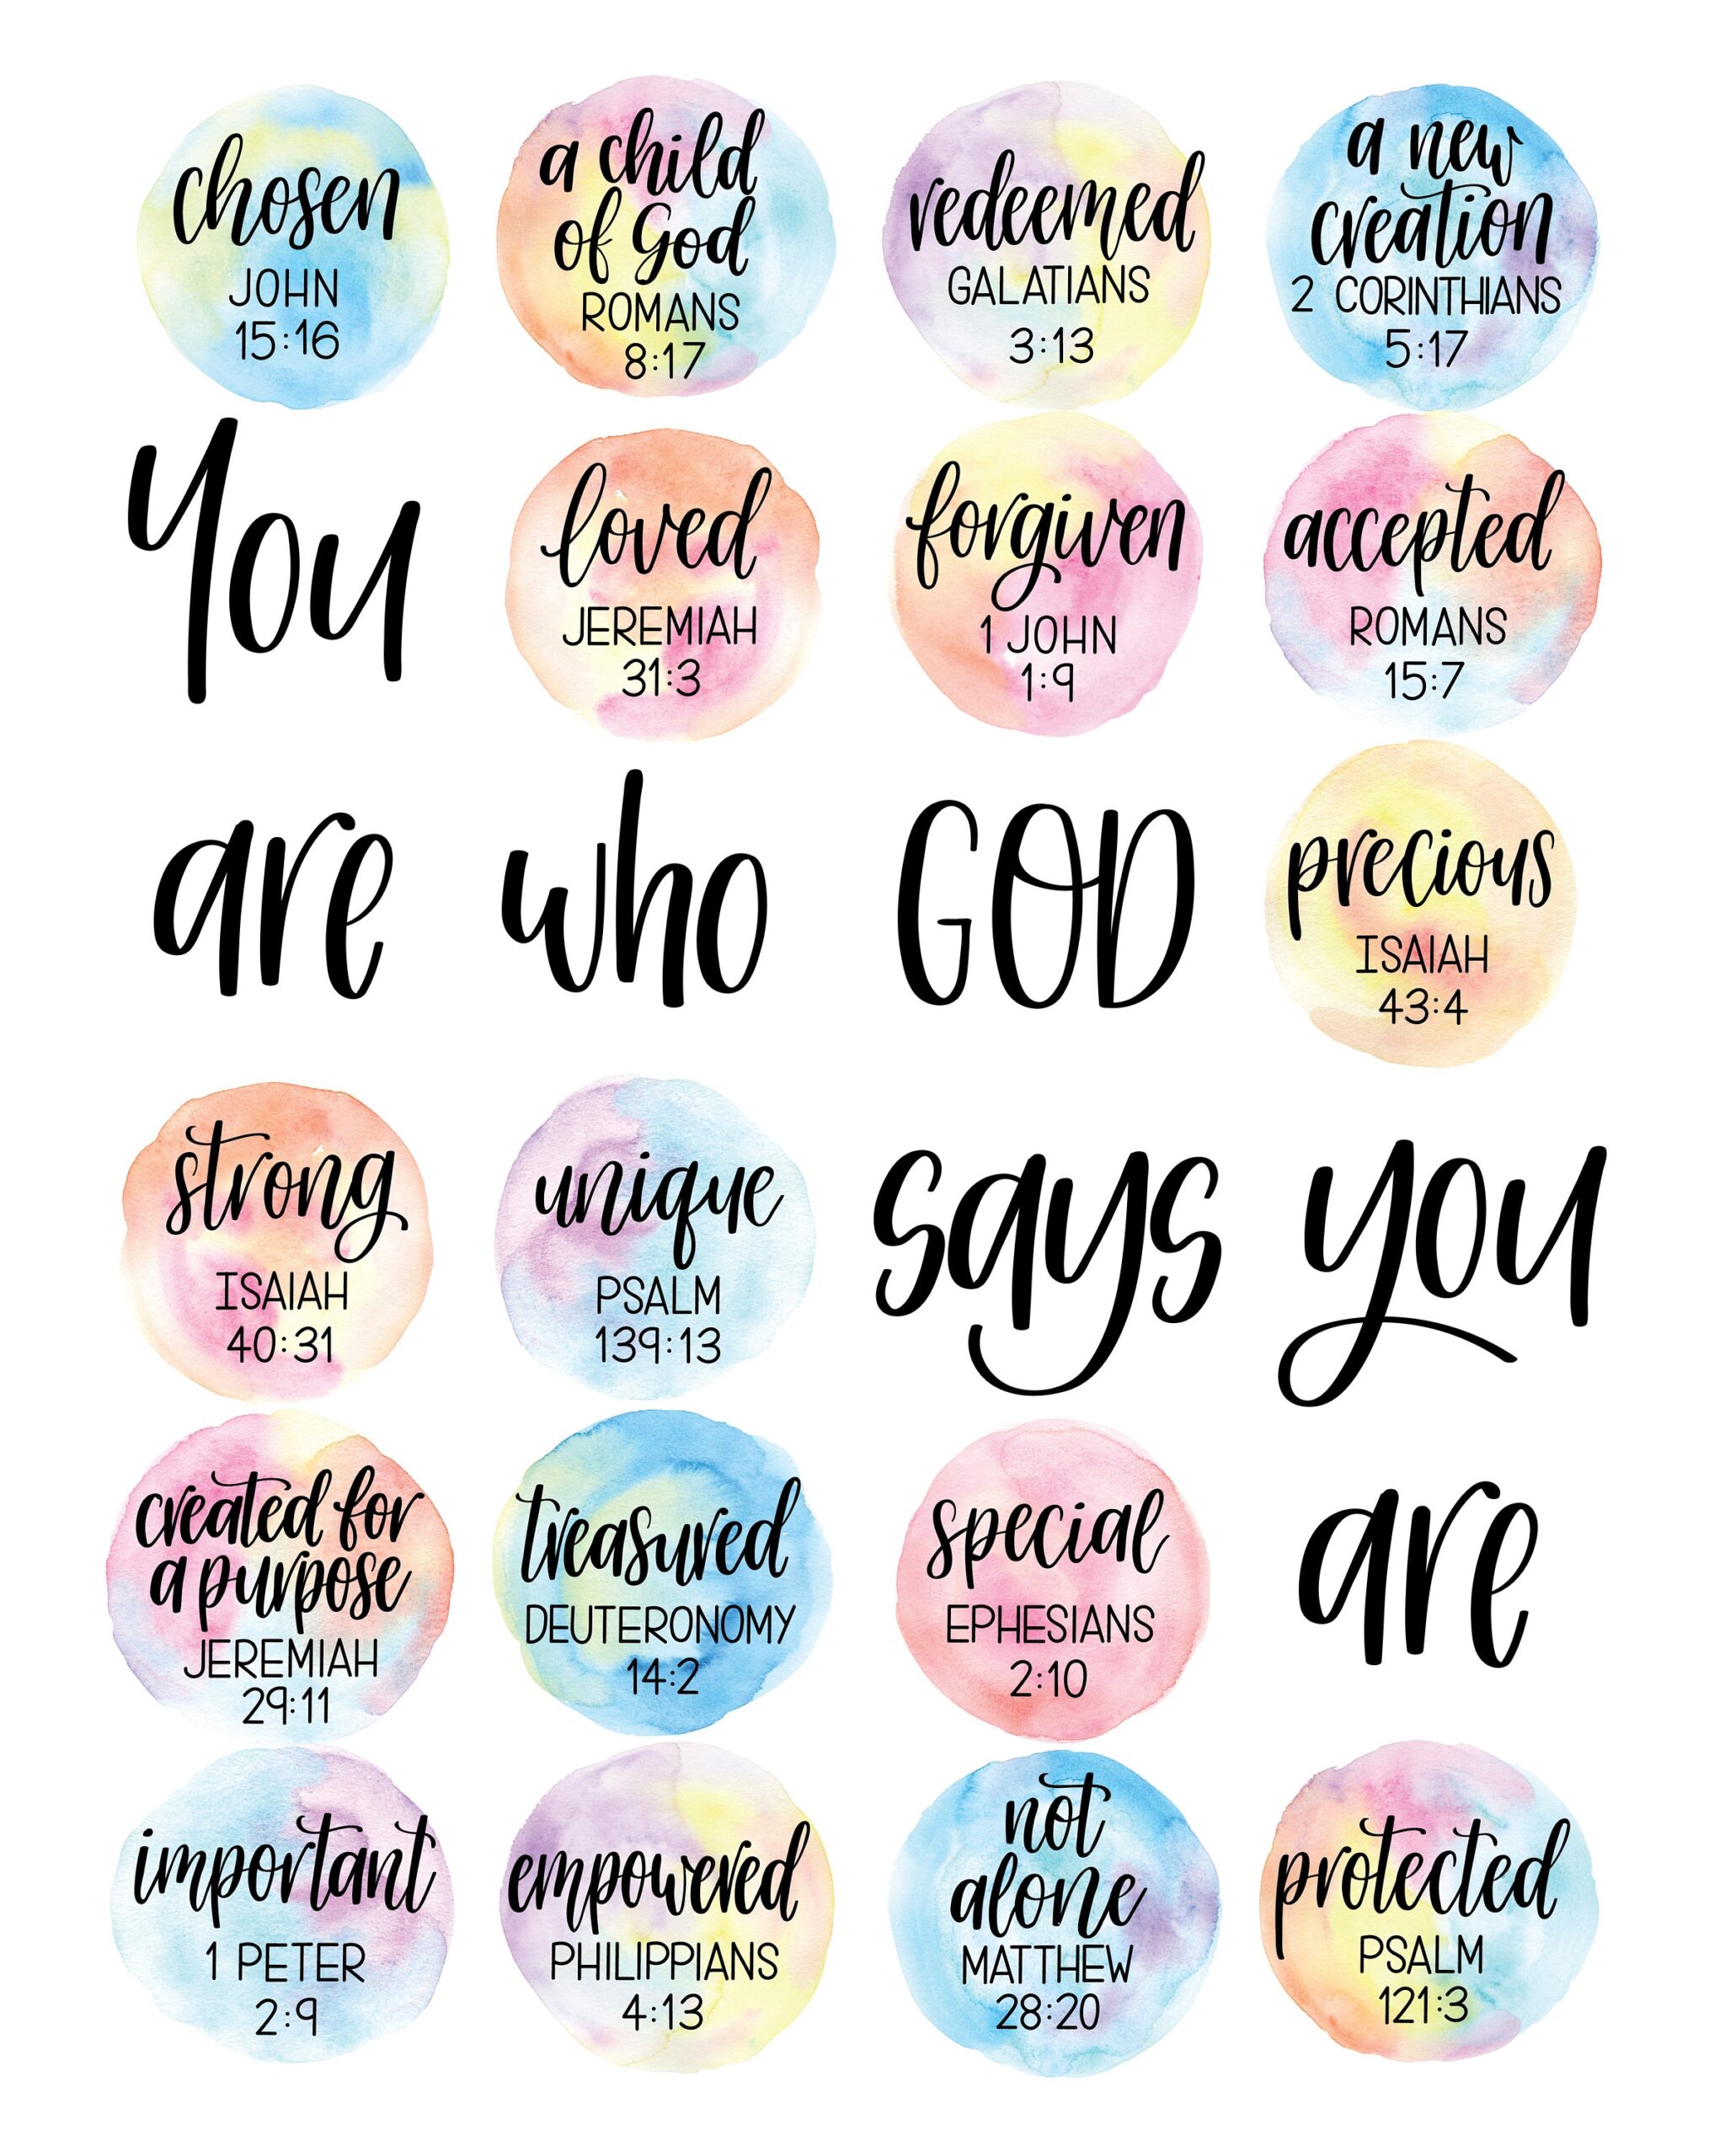 chosen
JOHN
15:16
a child
of God
ROMANS
8:17
redeemed
GALATIANS
3:13
a new
creation
2 CORINTHIANS
5:17
You
loved
JEREMIAH
31:3
forgiven
1 JOHN
1:9
accepted
ROMANS
15:7
are who GOD
precious
ISAIAH
43:4
strong
ISAIAH
40:31
unique
PSALM
139:13
says you
created for
a purpose
JEREMIAH
29:11
treasured
DEUTERONOMY
14:2
special
EPHESIANS
2:10
are
important
1 PETER
2:9
empowered
PHILIPPIANS
4:13
not
alone
MATTHEW
28:20
protected
PSALM
121:3